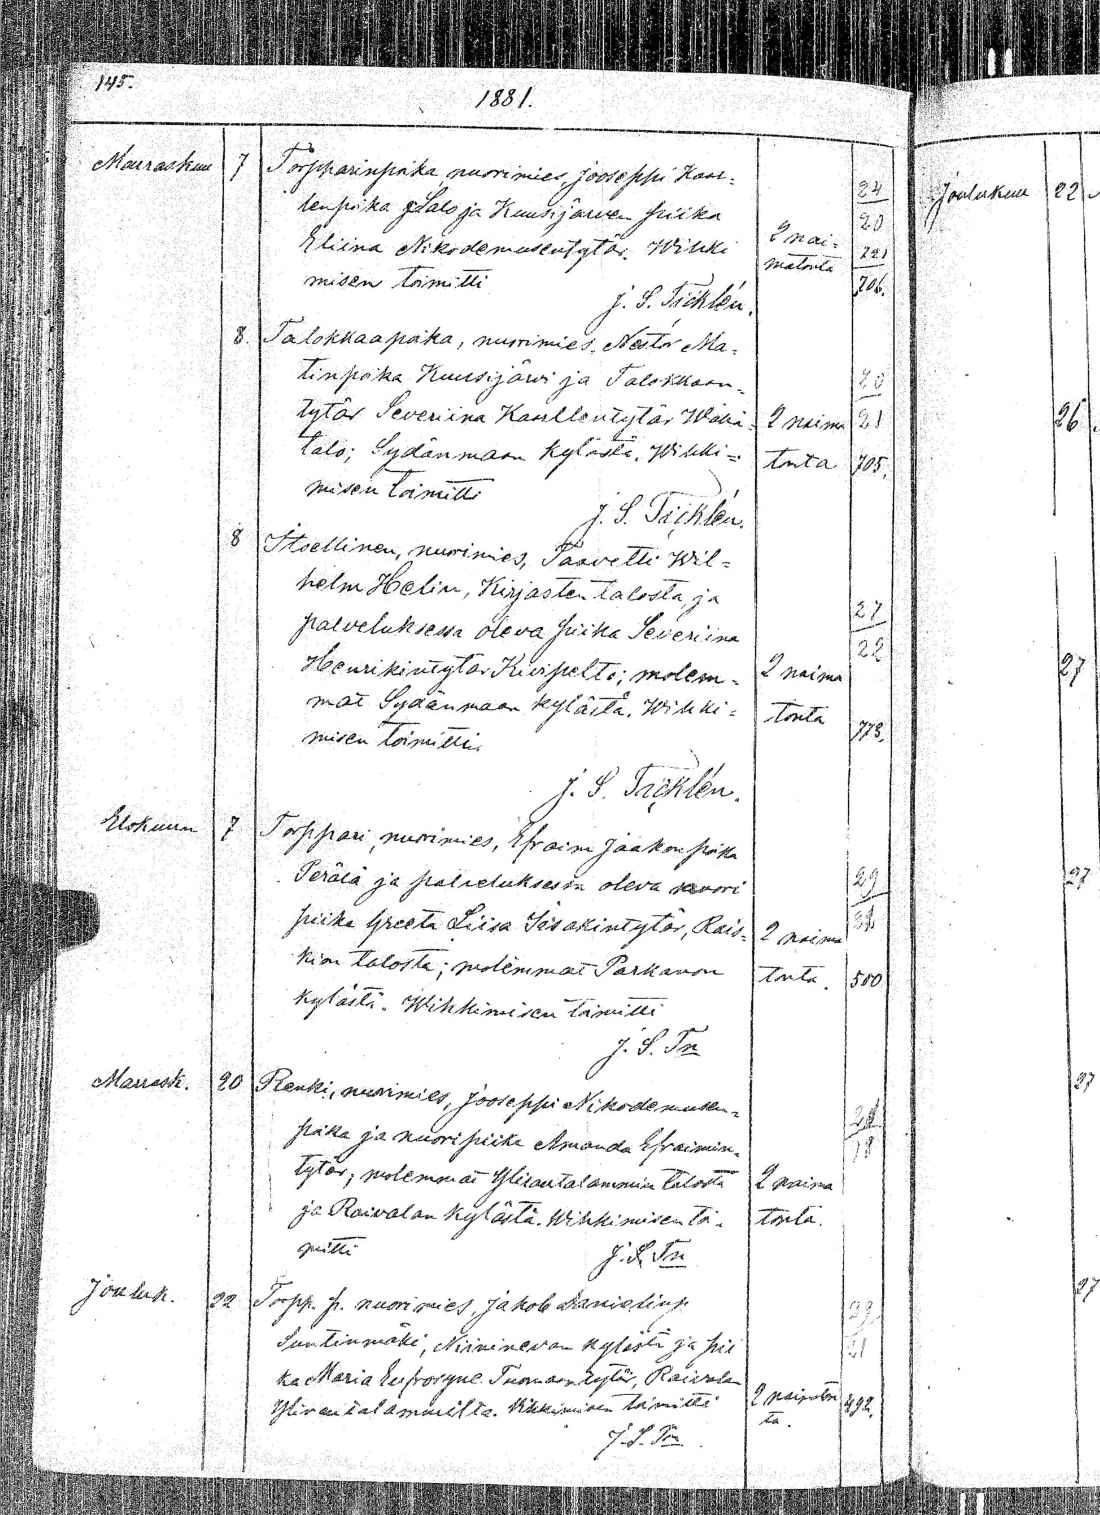 145.
1881.
Marraskuu 7 Torpparinpoika nuorimies, Jooseppi Kaar=
lenpoika Salo ja Kuusijärven piika
Eliina Nikodemusentytär. Wihki
misen toimitti
J. S. Täcklén.
2 nai=
matonta
24
20
721
706.
8. Talokkaapoika, nuorimies, Nestor Ma=
tinpoika Kuusijärvi ja Talokkaan=
tytär Severiina Kaarlentytär Wähä=
talo; Sydänmaan kylästä. Wihki=
misen toimitti
J. S. Täcklén.
2 naima
tonta
20
21
705.
8 Itsellinen, nuorimies, Taavetti Wil=
helm Helin, Kirjasten talosta, ja
palveluksessa oleva piika Severiina
Henrikintytär Kivipelto; molem=
mat Sydänmaan kylästä. Wihki=
misen toimitti.
J. S. Täcklén.
2 naima
tonta
27
22
773.
Elokuun 7 Torppari, nuorimies, Efraim Jaakonpoika
Perälä ja palveluksessa oleva nuori
piika Greeta Liisa Iisakintytär, Rais=
kion talosta; molemmat Parkanon
kylästä. Wihkimisen toimitti
J. S. Tn
2 naima
tonta.
29
500
Marrask. 20 Renki, nuorimies, Jooseppi Nikodemusen=
poika ja nuoripiika Amanda Efraimin=
tytär; molemmat Ylivantalammin talosta
ja Raivalan kylästä. Wihkimisen toi=
mitti
J. S. Tn
2 naima
tonta.
18
Jouluk. 22 Torpp. p. nuorimies, Jakob Danielinp
Suntinmäki, Niininevan kylästä ja pii
ka Maria Eufrosyne Tuomaantytär, Raivalan
Ylivantalammilta. Wihkimisen toimitti
J. S. Tn
2 naimaton
ta.
21
492.
Joulukuu 22
26
27
27
27
27